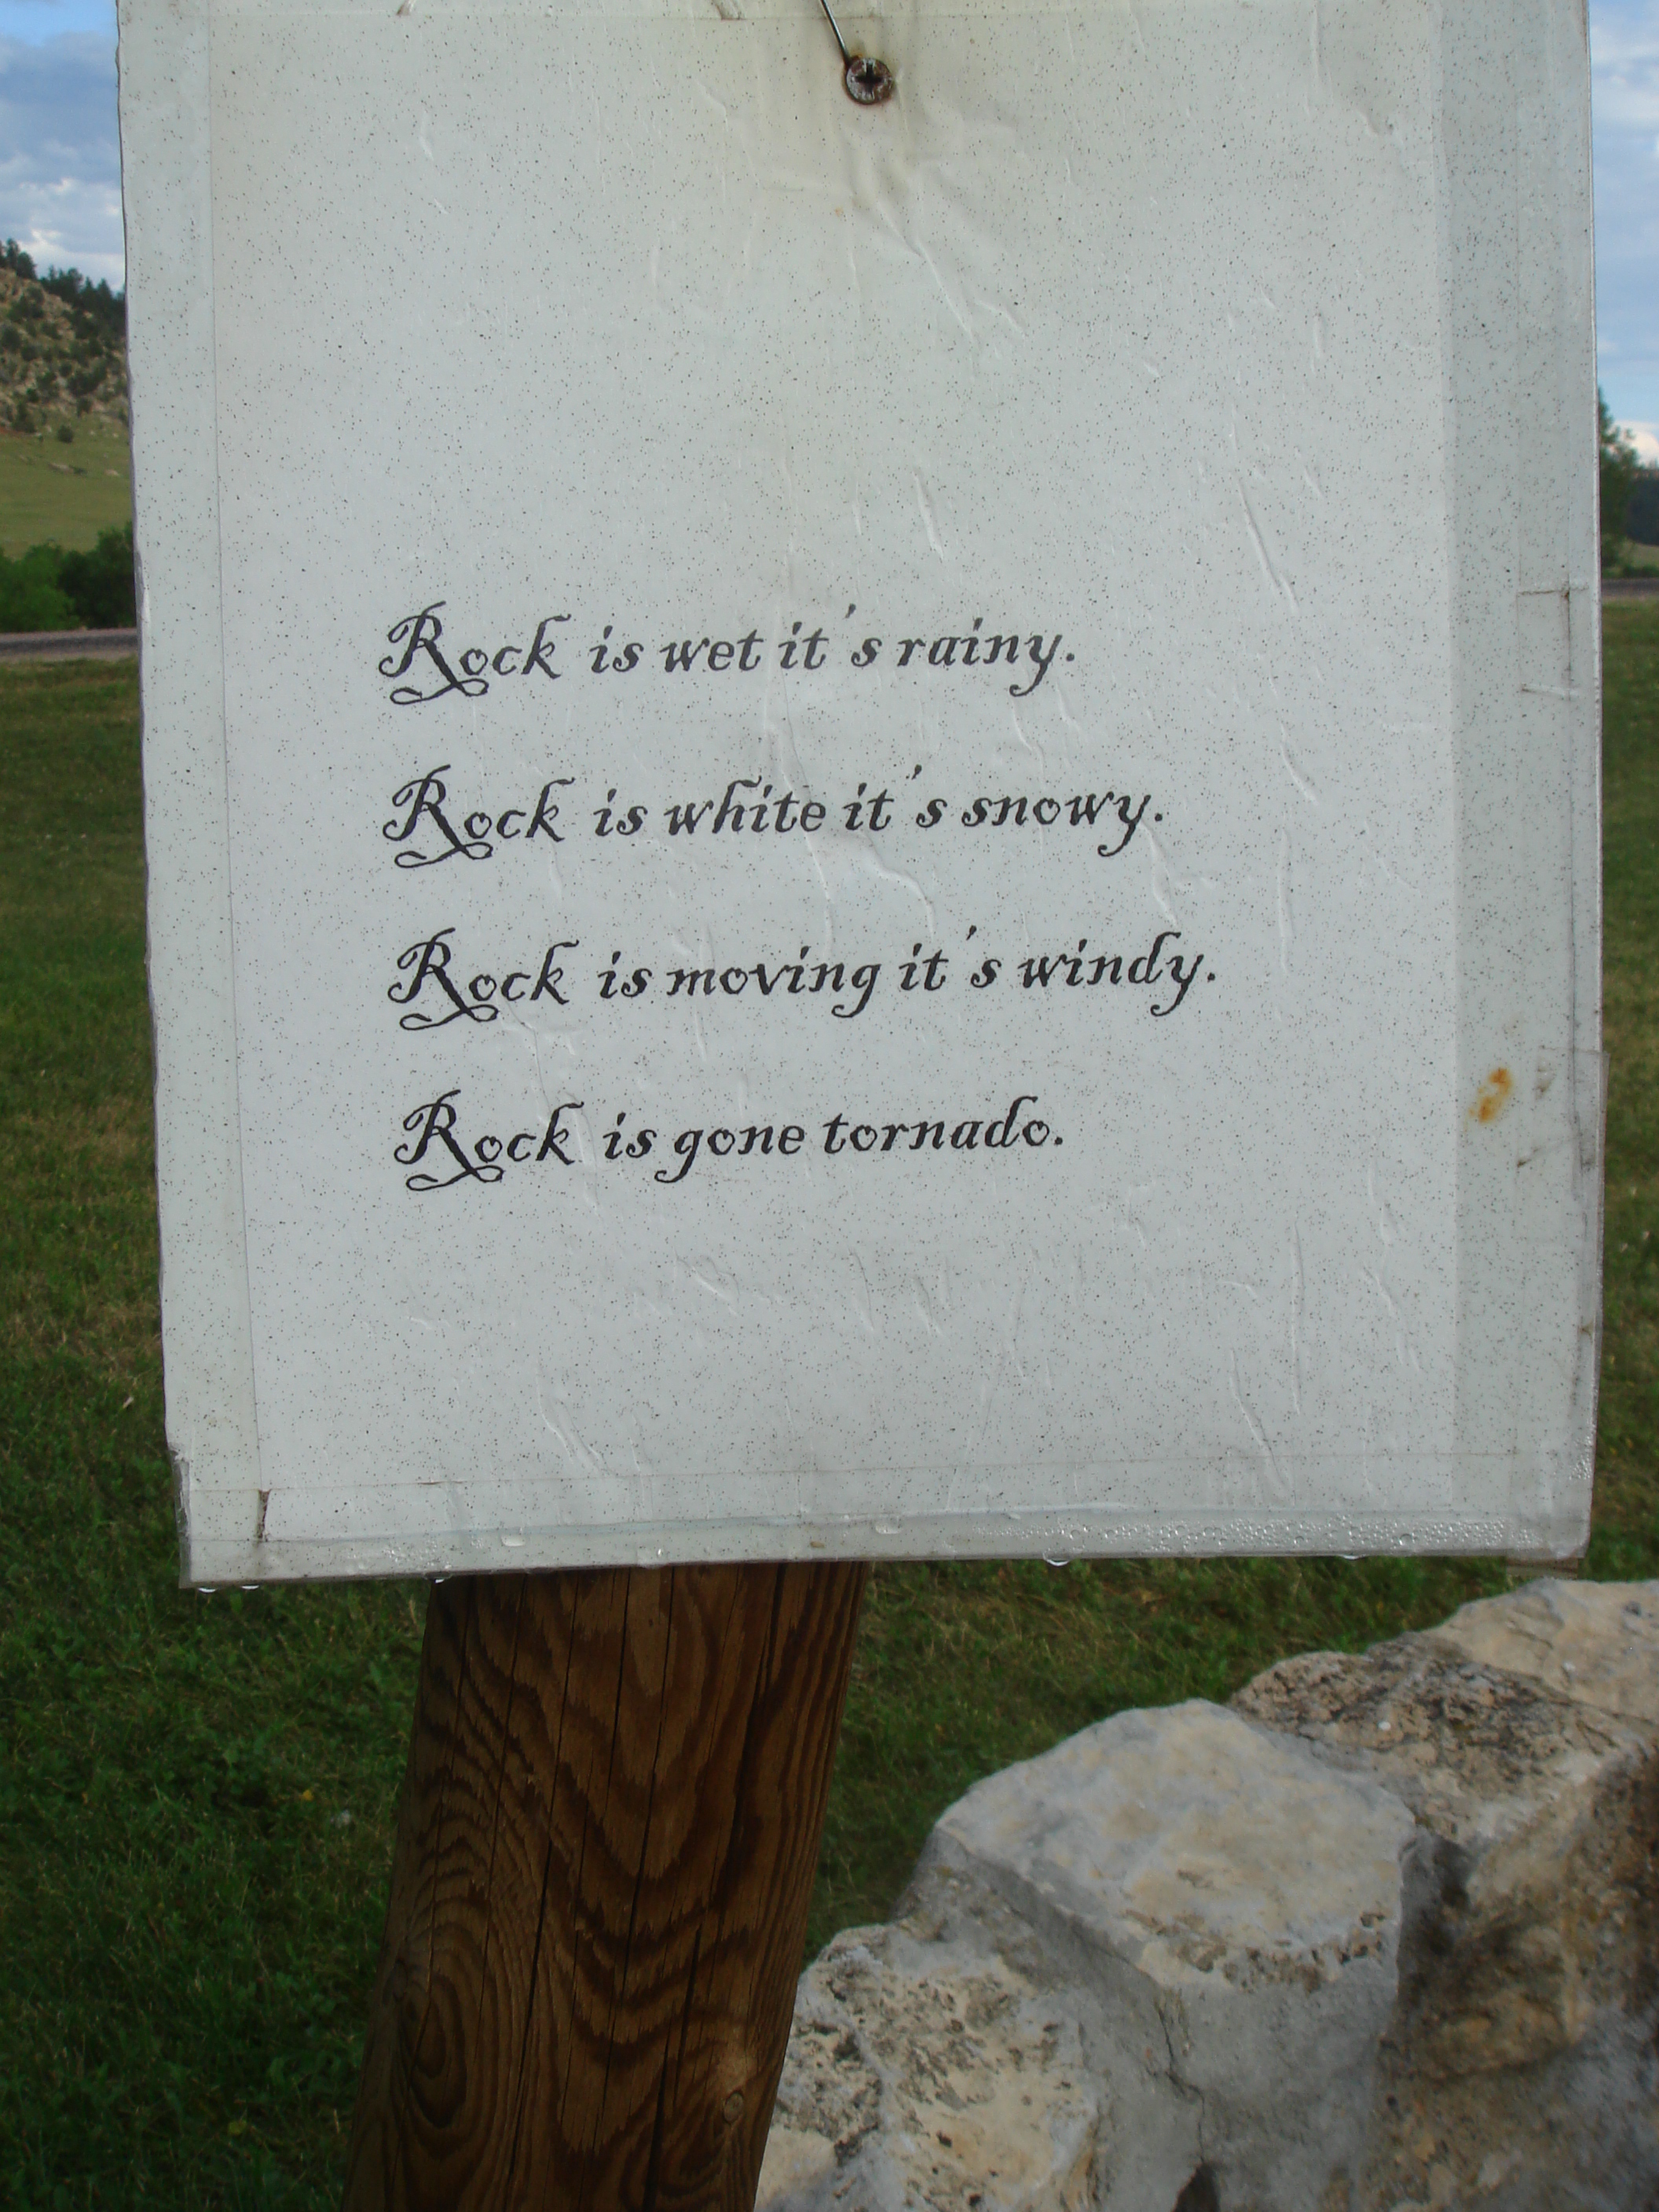 Rock is wet it's rainy.
Rock is white it's snowy.
Rock is moving it's windy.
Rock is gone tornado.